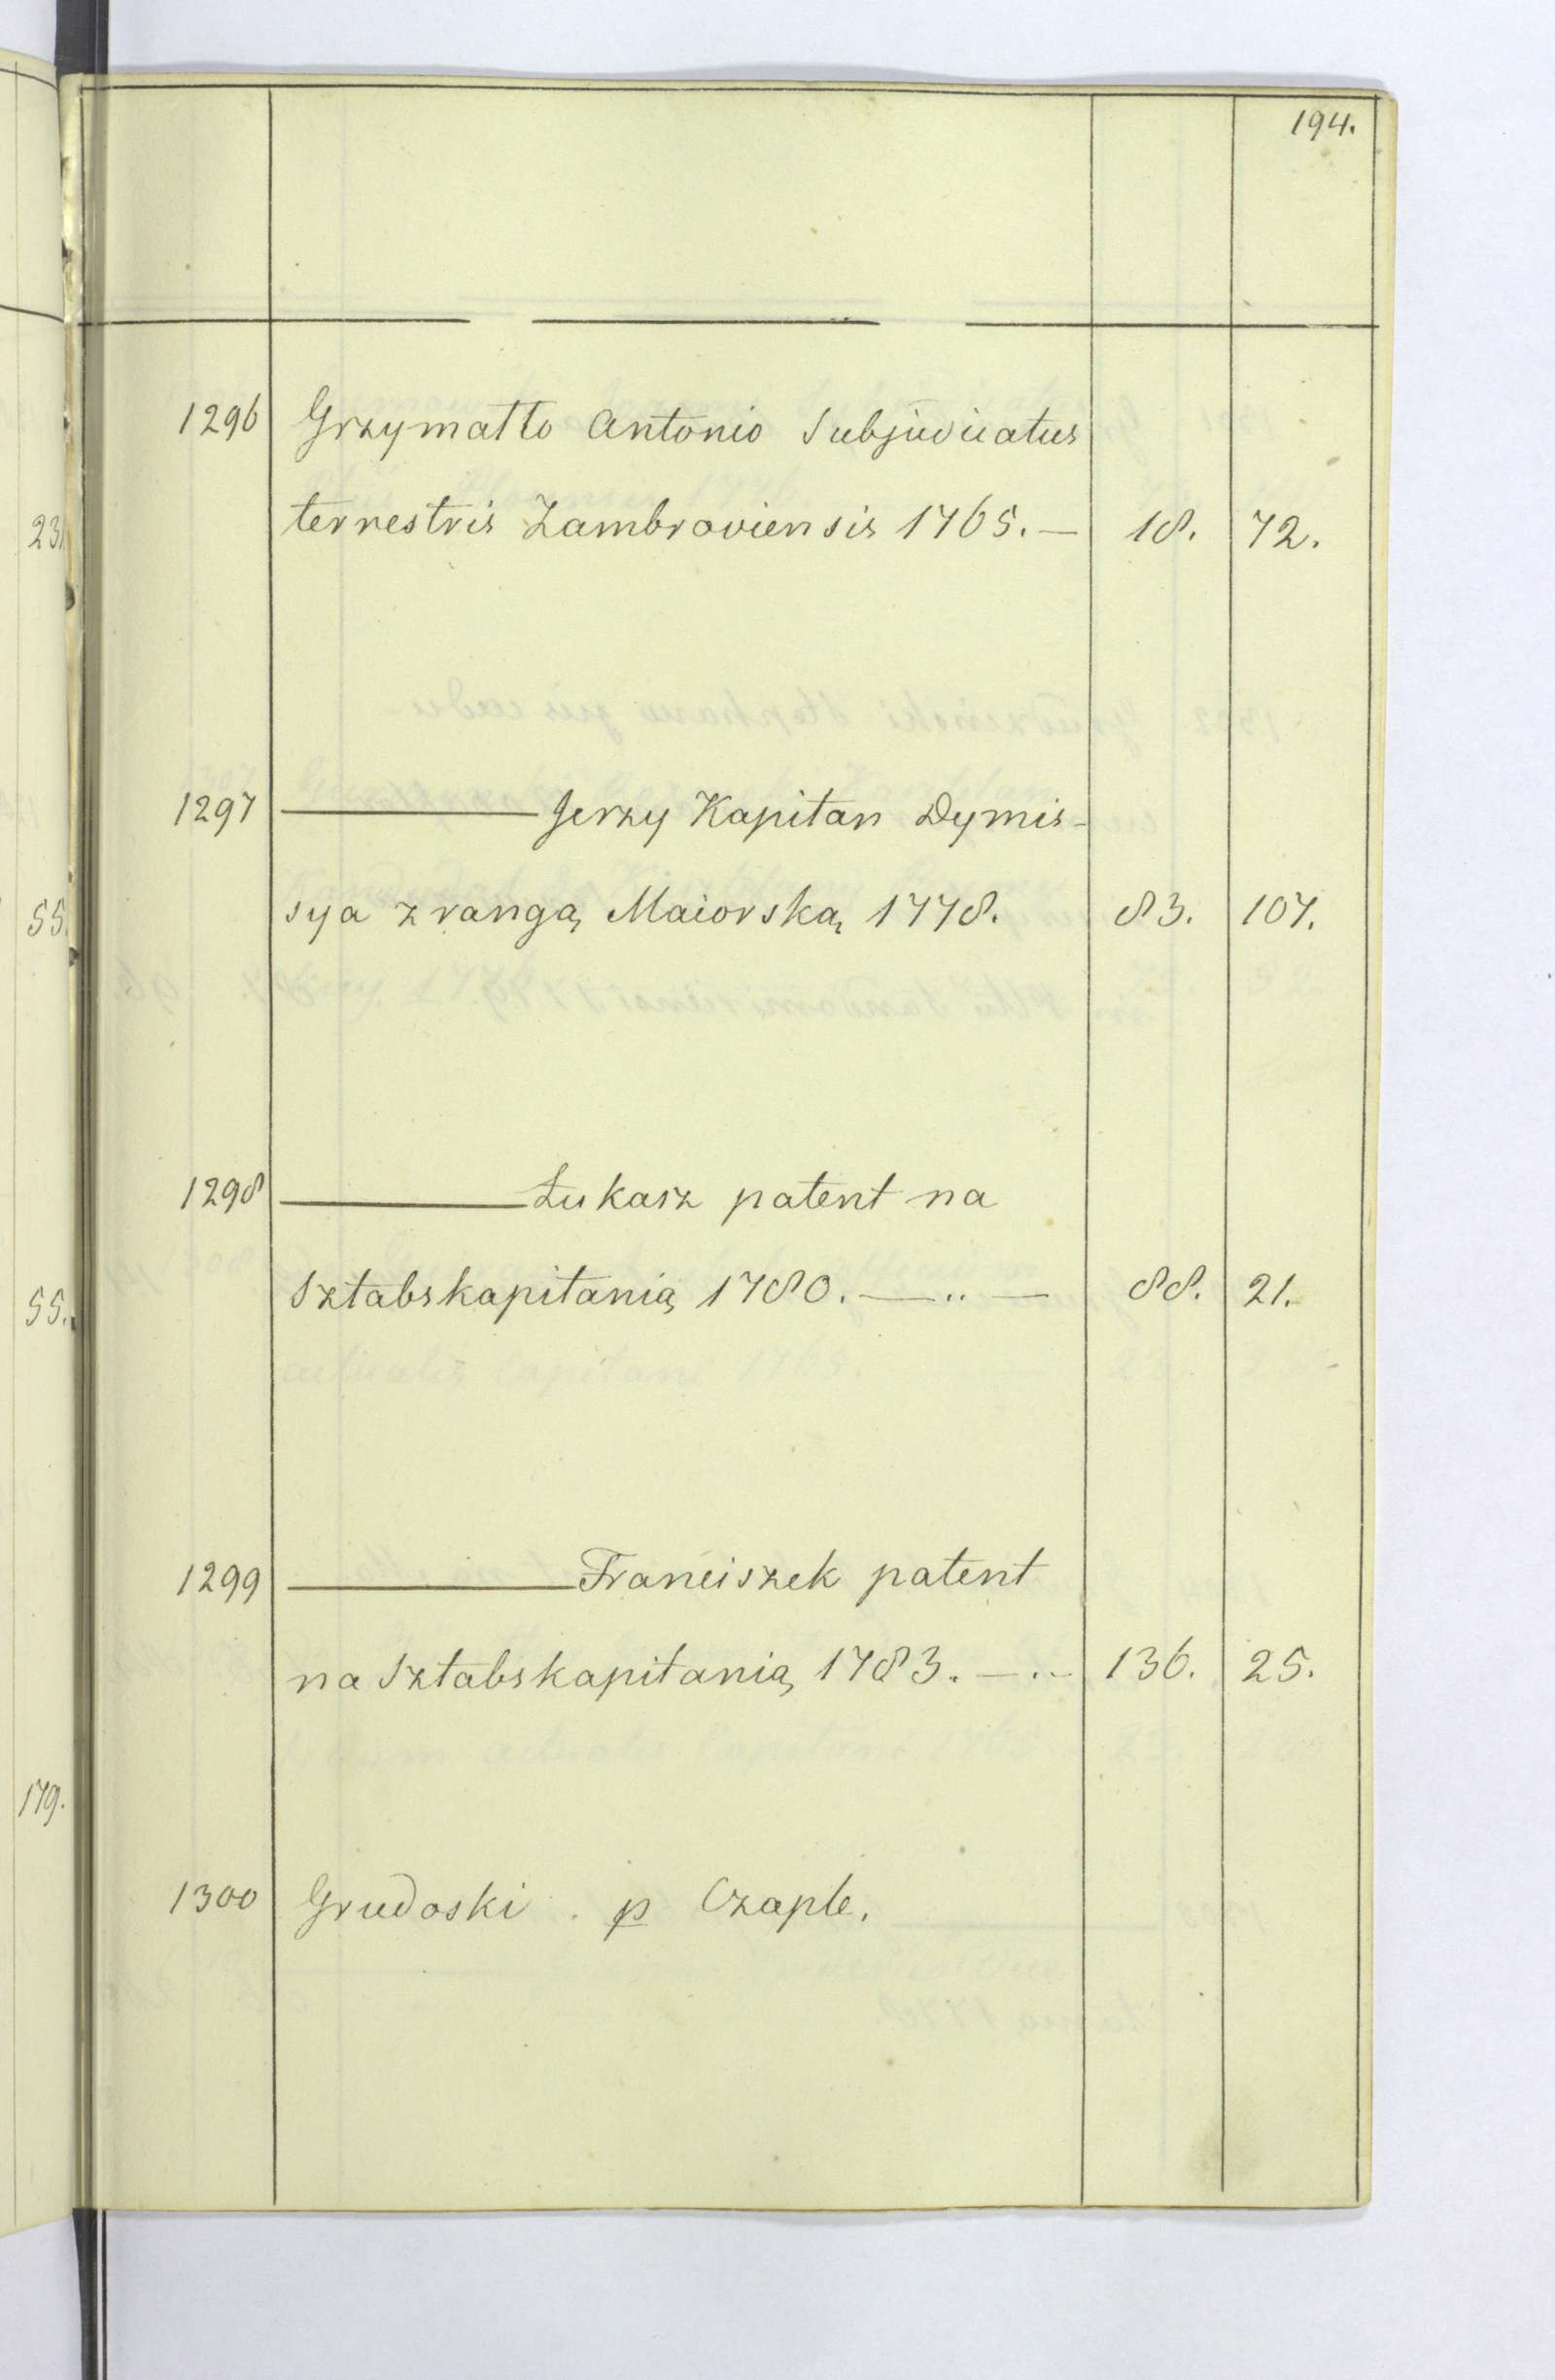 194.
1296 Grzymałło Antonio Subjudicatus
terrestris Zambroviensis 1765. — 18. 72.
1297 ——— Jerzy Kapitan Dymis-
sya z rangą Maiorską 1778. 83. 107.
1298 ——— Łukasz patent na
Sztabskapitanią 1780. — .. — 88. 21.
1299 ——— Franciszek patent
na Sztabskapitanią 1783. — .. — 136. 25.
1300 Grudoski p Czaple.
23.
55.
55.
179.